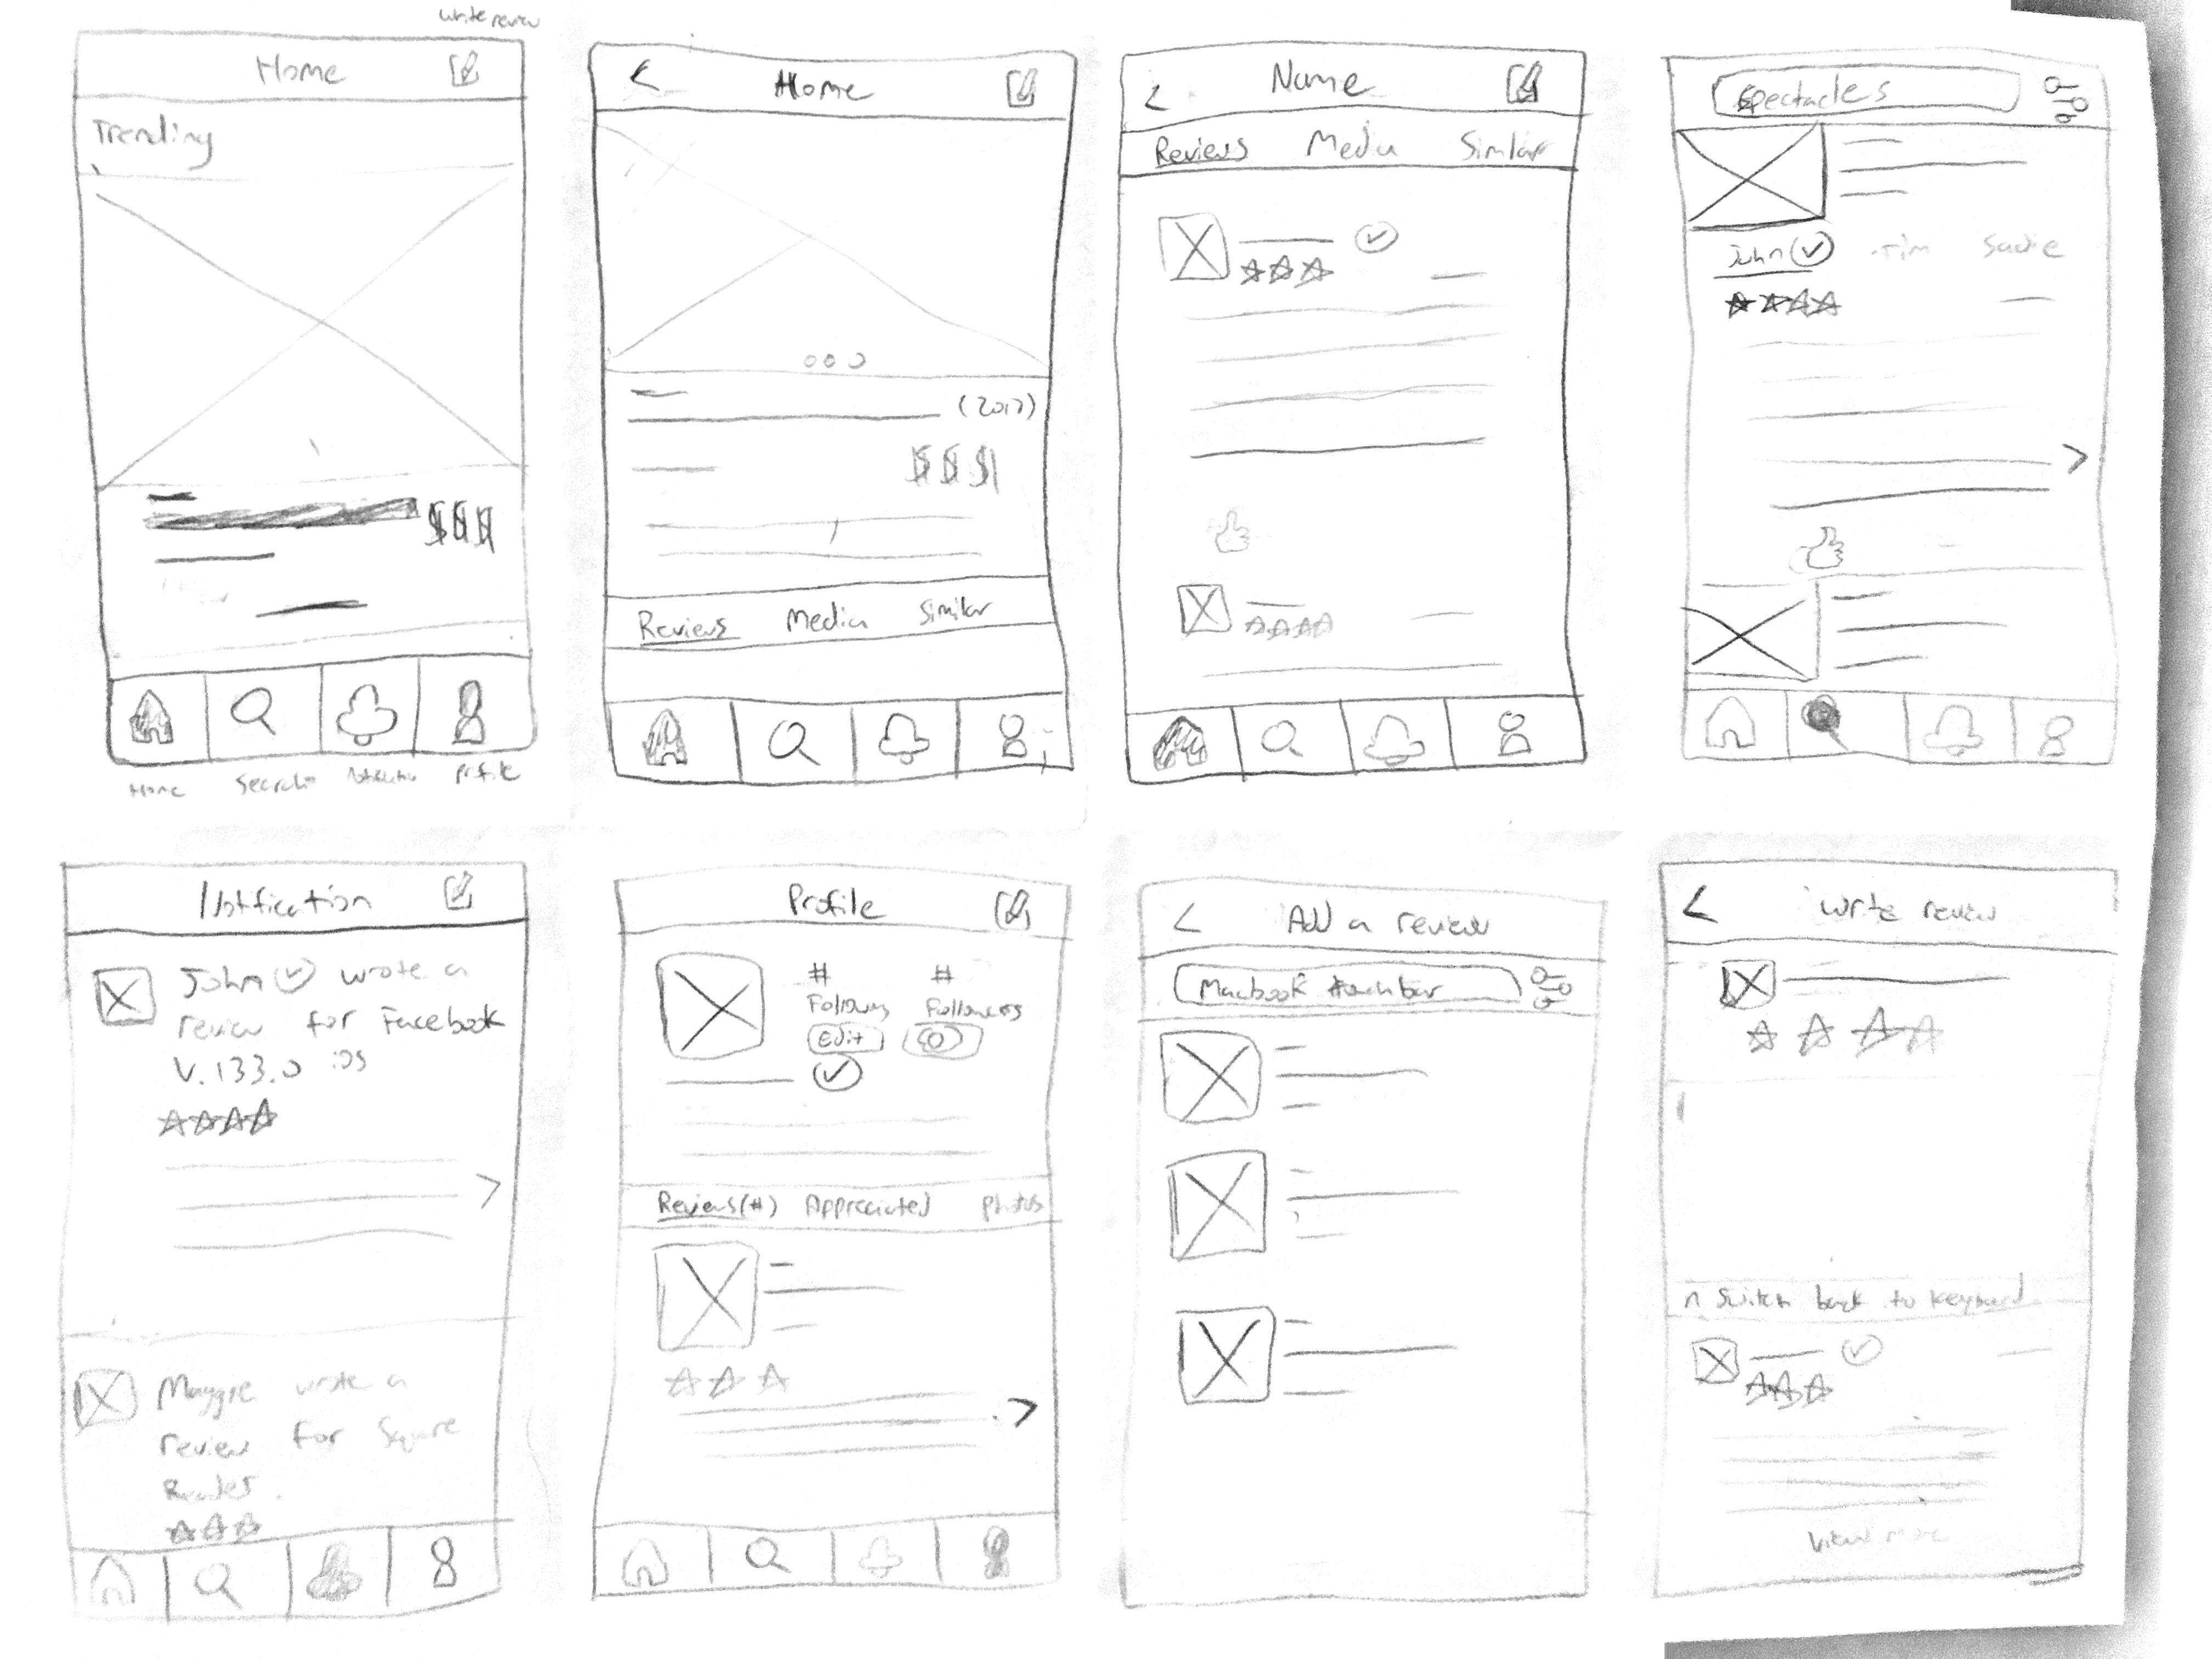 write review
Home
Trending
Home
Search
Notification
profile
Home
(2017)
$$$
Reviews Media Similar
Name
Reviews Media Similar
Spectacles
John Tim Sadie
Notification
John wrote a
review for Facebook
V.133.0 iOS
Maggie wrote a
review for Square
Reader
Profile
# #
Following Followers
Edit
Reviews(#) Appreciated photos
Add a review
Macbook touch bar
write review
switch back to keyboard
View more